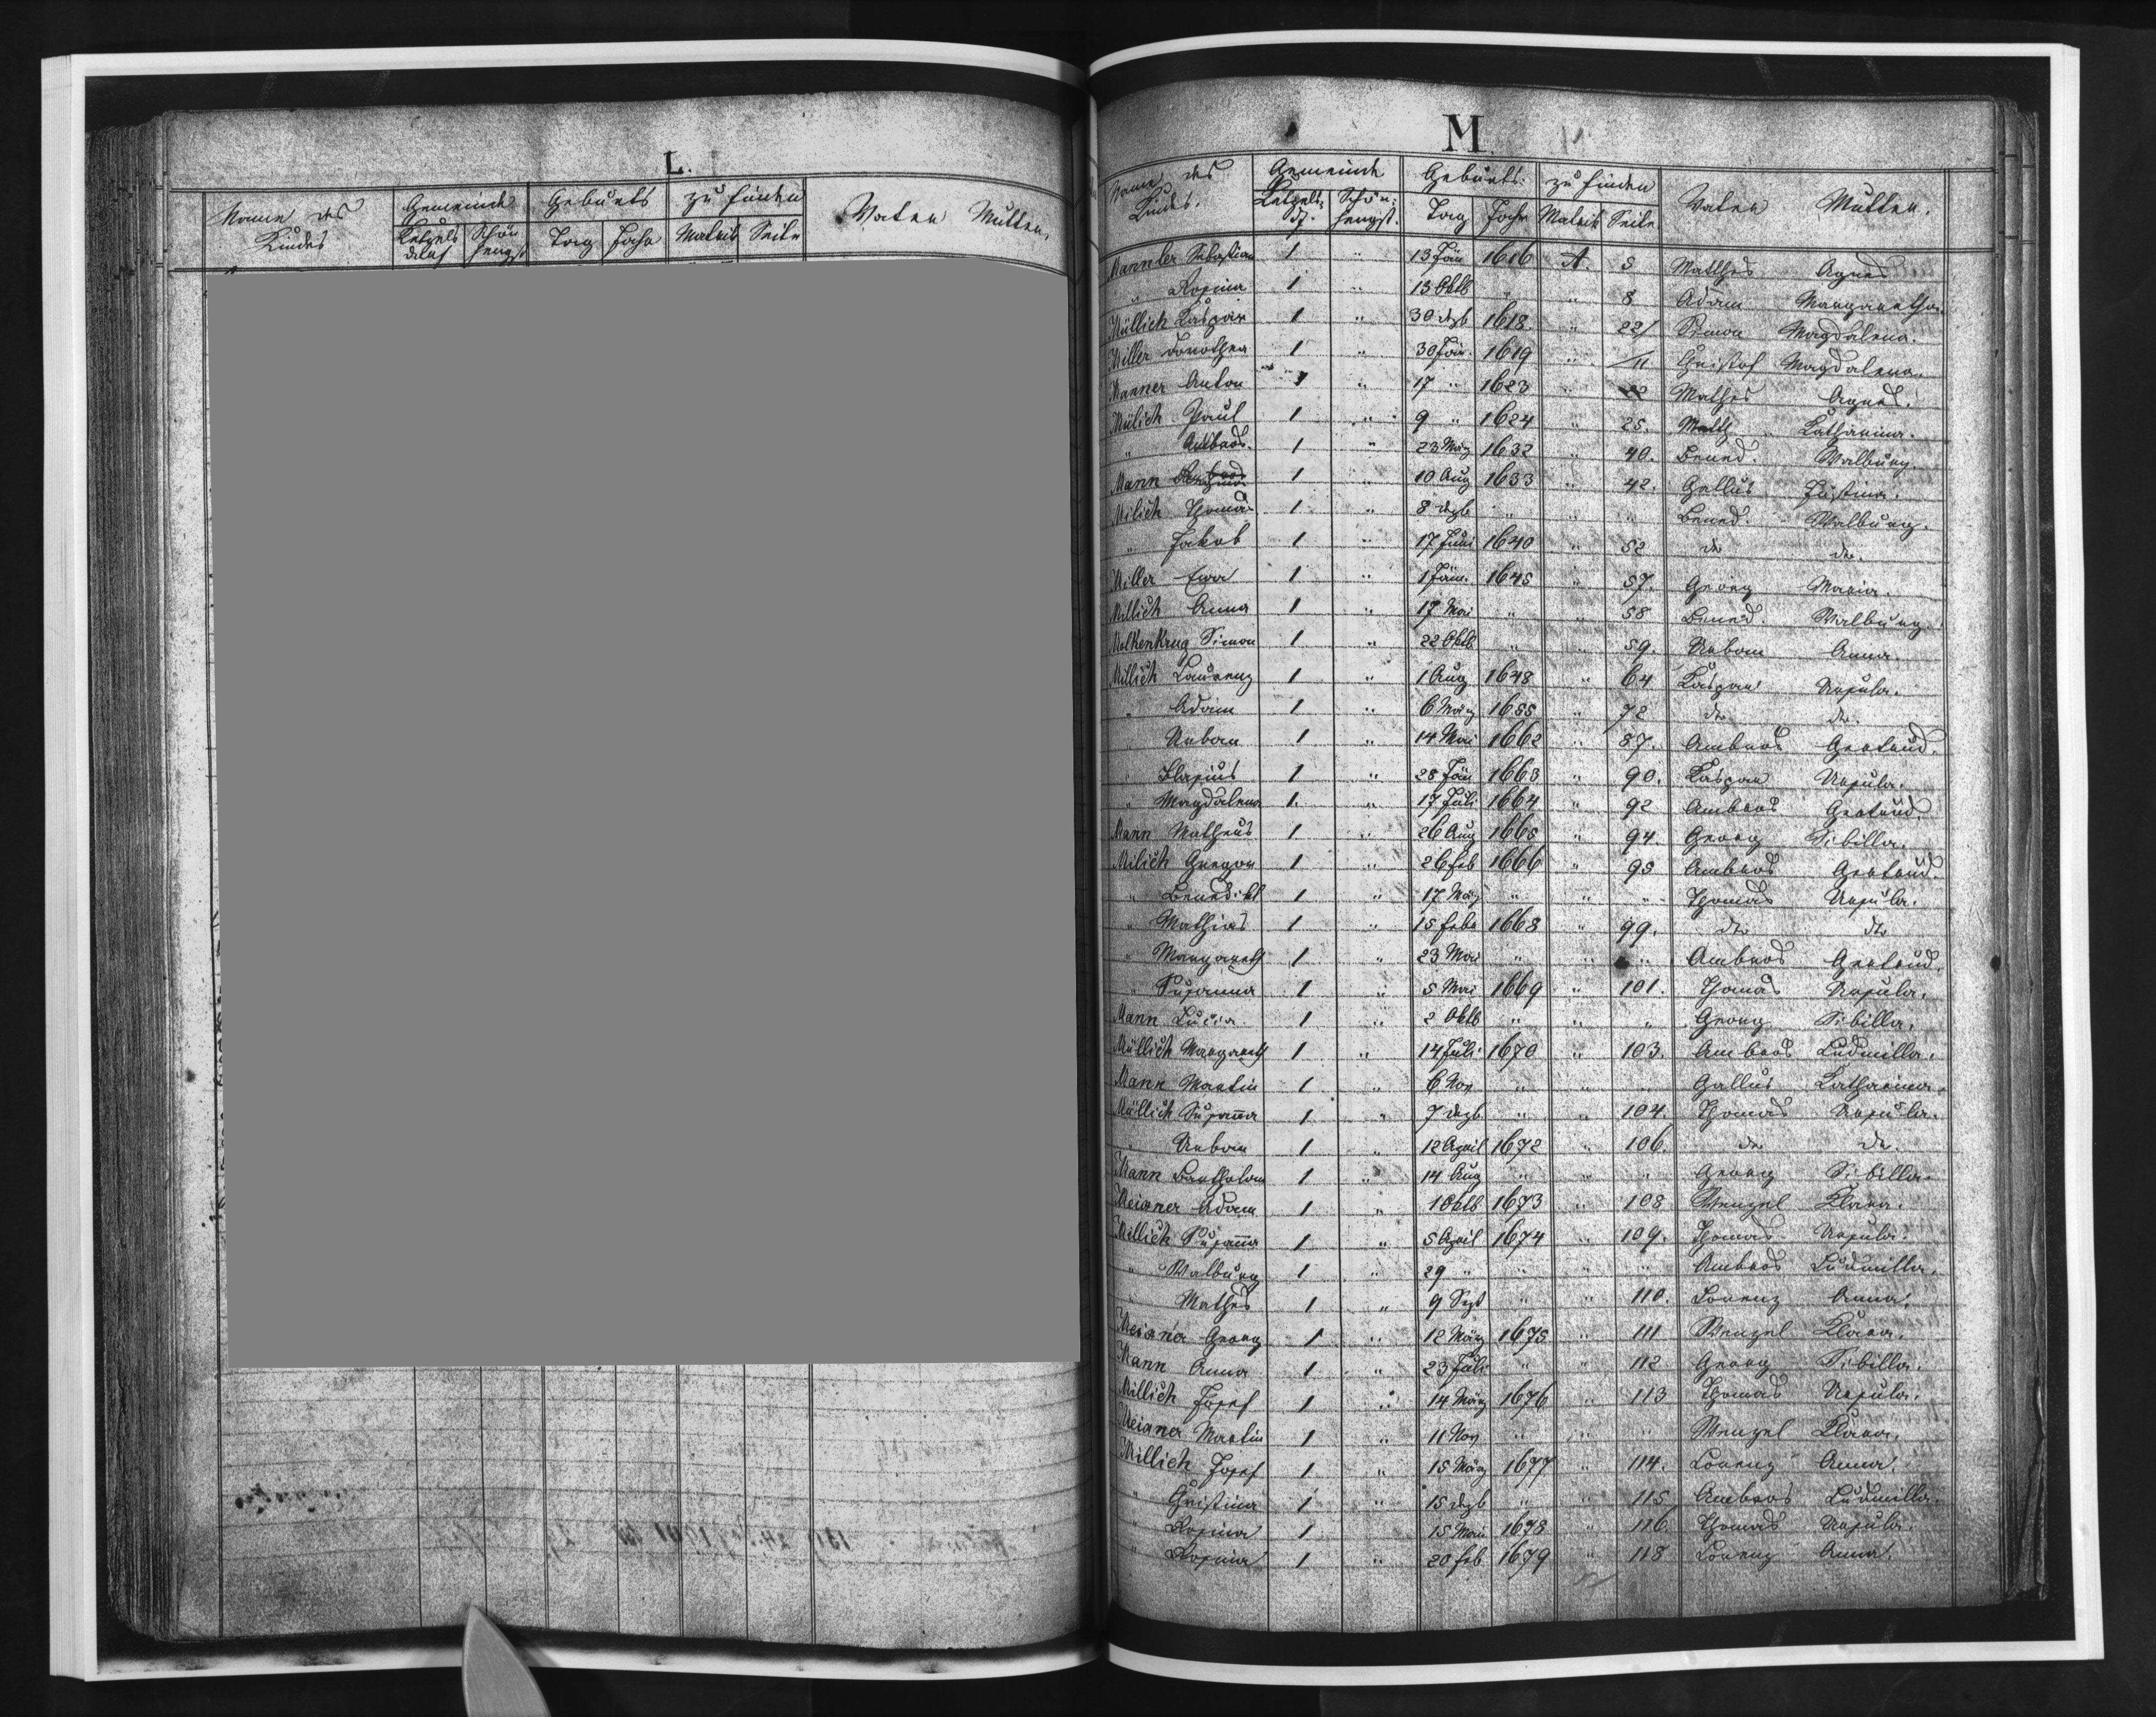 L.
Name des Kindes Gemeinde Geburts zu finden Vater Mutter.
Ketzels dorf Schön hengst Tag Jahr Matrik Seite
M
Name des Kindes. Gemeinde Geburts: zu finden Vater Mutter.
Ketzels: df. Schön: hengst. Tag Jahr Matrik Seite
Mannler Sebastian 1 " 13 Jän 1616 A. 5 Matthes Agnes
" Rosina 1 " 13 Oktb " " 8 Adam Margaretha.
Müllich Kaspar 1 " 30 dezb 1618 " 22/ Simon Magdalena.
Miller Dorothea 1 " 30 Jän. 1619 " 11 Christof Magdalena.
Manner Anton 1 " 17 " 1623 " 22 Mathes Agnes.
Mülich Paul 1 " 9 " 1624 " 25. Math Katharina.
" Ambros. 1 " 23 März 1632 " 40. Bened. Walburg.
Mann 1 " 10 Aug 1633 " 42. Gallus Justina.
Milich Thomas 1 " 8 dezb " " " Bened. Walburg.
" Jakob 1 " 17 Juni 1640 " 52 dto dto.
Miller Eva 1 " 1 Jän. 1645 " 57. Georg Maria.
Millich Anna 1 " 17 Mai " " 58 Bened. Walburg.
Molkenkrug Simon 1 " 22 Oktb " " 59. Urban Anna.
Millich Laurenz 1 " 1 Aug 1648 " 64 Kaspar Ursula.
" Adam 1 " 6 März 1655 " 72 dto dto.
" Urban 1 " 14 Mai 1662 " 87. Ambros Gertrud.
" Blasius 1 " 28 Jän 1663 " 90. Kaspar Ursula.
" Magdalena 1. " 17 Juli 1664 " 92 Ambros Gertrud
Mann Matheus 1 " 26 Aug 1665 " 94. Georg Sibilla.
Milich Gregor 1 " 26 feb 1666 " 95 Ambros Gertrud.
" Benedikt 1 " 17 März " " " Thomas Ursula.
" Mathias 1 " 15 Febr 1668 " 99. dto dto
" Margareth 1 " 23 Mai " " " Ambros Gertrud.
" Susanna 1 " 5 Mai 1669 " 101. Thomas Ursula.
Mann Lucia. 1 " 2 Oktb " " " Georg Sibilla.
Müllich Margareth 1 " 14 Juli 1670 " 103. Ambros Ludmilla.
Mann Martin 1 " 6 Nov " " " Gallus Katharina.
Müllich Susana 1 " 7 dezb " " 104. Thomas Ursula.
" Urban 1 " 12 April 1672 " 106. dto dto.
Mann Bartholom 1 " 14 Aug " " " Georg Sibilla.
Meixner Adam 1 " 1 Oktb 1673 " 108 Wenzel Klara.
Millich Susana 1 " 5 April 1674 " 109. Thomas Ursula.
" Walburg 1 " 29 " " " " Ambros Ludmilla.
" Mathes 1 " 9 Sept " " 110. Lorenz Anna.
Meixner Georg 1 " 12 März 1675 " 111 Wenzel Klara.
Mann Anna 1 " 23 Juli " " 112 Georg Sibilla.
Millich Josef 1 " 14 März 1676 " 113 Thomas Ursula.
Meixner Martin 1 " 11 Nov " " " Wenzel Klara.
Millich Josef 1 " 15 März 1677 " 114. Lorenz Anna.
" Christina 1 " 15 dezb " " 115 Ambros Ludmilla.
" Rosina 1 " 15 Mai 1678 " 116. Thomas Ursula.
" Rosina 1 " 20 feb 1679 " 118 Lorenz Anna.